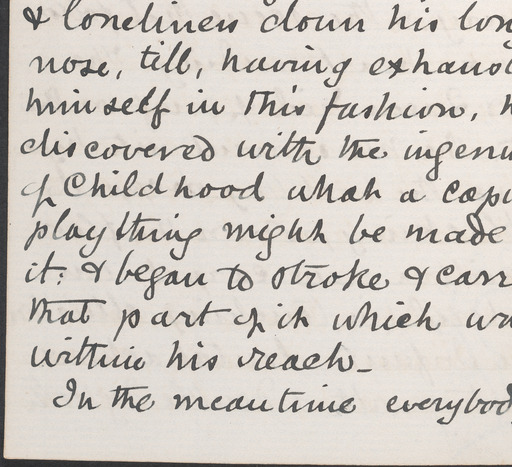 & loneliness down his lon
nose, till, having exhaus
himself in this fashion, h
discovered with the ingenu
of Childhood what a cap
play thing might be made
it: & began to stroke & carr
that part of it which wa
within his reach_
In the meantime everybod